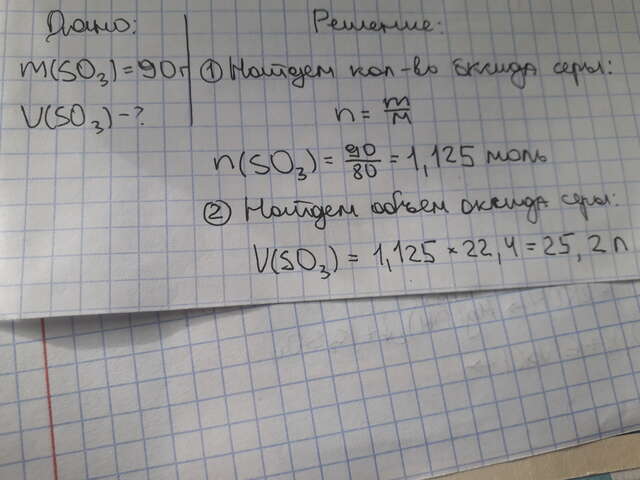 Дано:
Решение:
m(SO₃)=90г
① Найдем кол-во оксида серы:
V(SO₃)-?
n = m/M
n(SO₃) = 90/80 = 1,125 моль
② Найдем объем оксида серы:
V(SO₃) = 1,125 × 22,4 = 25,2 л